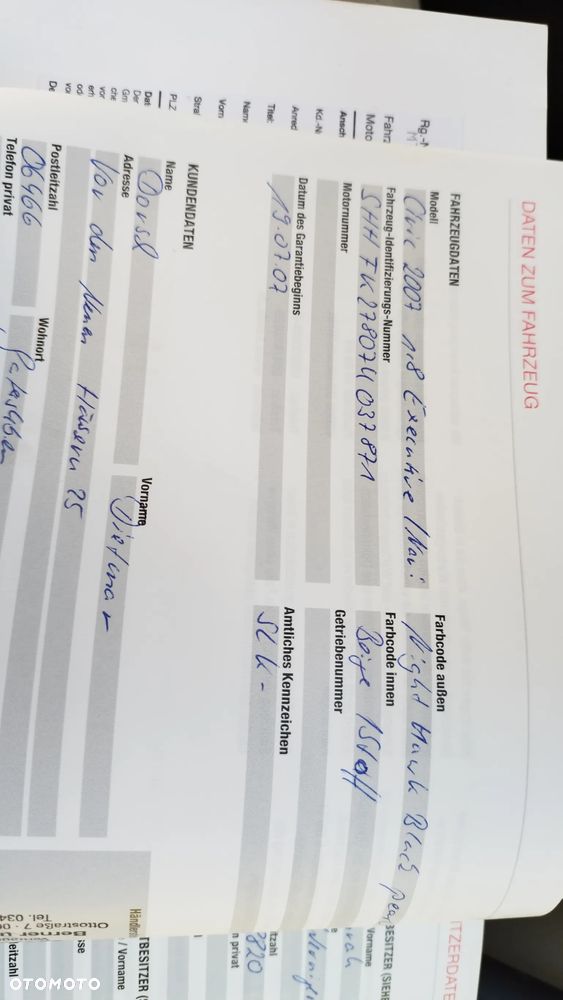 DATEN ZUM FAHRZEUG
FAHRZEUGDATEN
Modell
Civic 2007 1.8 Executive / Navi
Farbcode außen
Night Hawk Black pearl
Fahrzeug-Identifizierungs-Nummer
SHHFK27807U037871
Farbcode innen
Beige / Stoff
Motornummer
Getriebenummer
Datum des Garantiebeginns
19.07.07
Amtliches Kennzeichen
SLK-
KUNDENDATEN
Name
Vorname
Dietmar
Adresse
Vor den Neuen Häusern 25
Postleitzahl
06466
Wohnort
Telefon privat
Rg.-
Fahrz
Moto
Ansch
Kd.-N
Anred
Titel:
Nam
Vorn
Straß
PLZ
Dat
Der
ITZERDATE
BESITZER (SIEHE
Vorname
tzahl
3820
n privat
TBESITZER (
/ Vorname
Händlers
se
eitzahl
Berner u
Ottostraße 7 · 06
Tel. 034
OTOMOTO